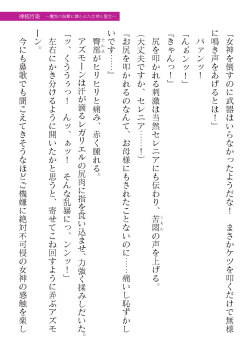 神核汚染
「女神を倒すのに武器はいらなかったようだな！　まさかケツを叩くだけで無様
に鳴き声をあげるとは！」
　パァンッ！
「んぉンッ！」
『きゃんっ！』
　尻を叩かれる刺激は当然セレニアにも伝わり、苦悶の声を上げる。
（大丈夫ですか、セレニア……！）
『お尻を叩かれるのなんて、お母様にもされたことないのに……痛いし恥ずかし
いです……』
　臀部がヒリヒリと痛み、赤く腫れる。
　アズモーンは汗が滴るレガリエルの尻肉に指を食い込ませ、力強く揉みしだいた。
「ッ、くううぅっ！　んッ、ぁッ！　そんな乱暴にっ、ンンッ！」
　左右にかき分けるように開いたかと思うと、寄せてこね回すように弄ぶアズモ
ーン。
　今にも鼻歌でも聞こえてきそうなほどご機嫌に絶対不可侵の女神の感触を楽し